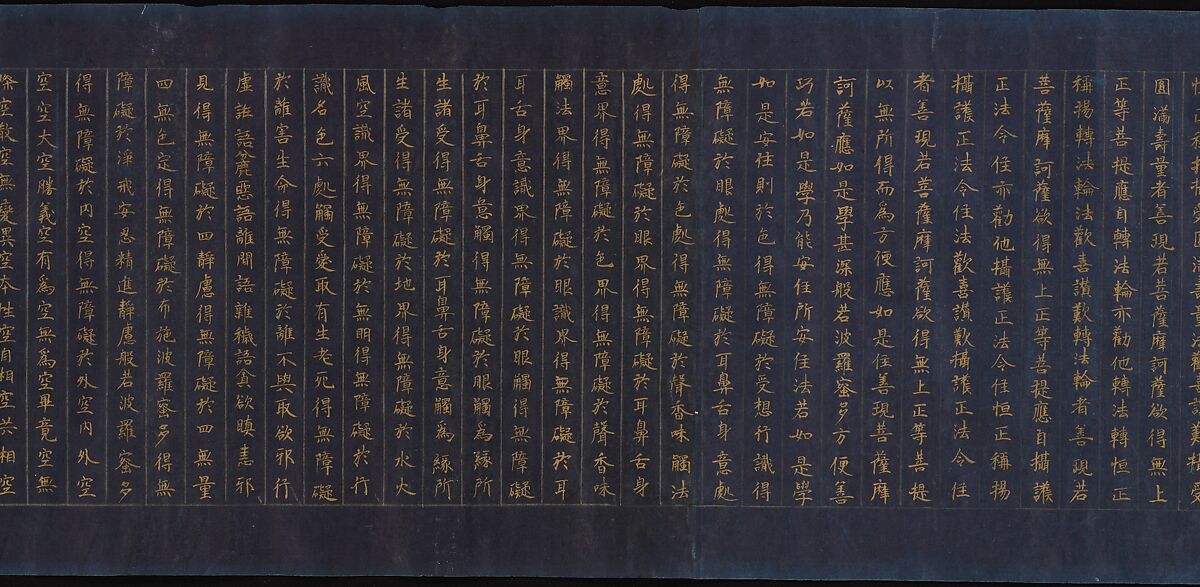 圓滿壽量者善現若菩薩摩訶薩欲得無上
正等菩提應自轉法輪亦勸他轉法轉恒正
稱揚轉法輪法歡喜讚歎轉法輪者善現若
菩薩摩訶薩欲得無上正等菩提應自攝護
正法令住亦勸他攝護正法令住恒正稱揚
攝護正法令住法歡喜讚歎攝護正法令住
者善現若菩薩摩訶薩欲得無上正等菩提
以無所得而為方便應如是住善現菩薩摩
訶薩應如是學甚深般若波羅蜜多方便善
巧若如是學乃能安住所安住法若如是學
如是安住則於色得無障礙於受想行識得
無障礙於眼處得無障礙於耳鼻舌身意處
得無障礙於色處得無障礙於聲香味觸法
處得無障礙於眼界得無障礙於耳鼻舌身
意界得無障礙於色界得無障礙於聲香味
觸法界得無障礙於眼識界得無障礙於耳
耳舌身意識界得無障礙於眼觸得無障礙
於耳鼻舌身意觸得無障礙於眼觸為緣所
生諸受得無障礙於耳鼻舌身意觸為緣所
生諸受得無障礙於地界得無障礙於水火
風空識界得無障礙於無明得無障礙於行
識名色六處觸受愛取有生老死得無障礙
於離害生命得無障礙於離不與取欲邪行
虛誑語麁惡語離間語雜穢語貪欲瞋恚邪
見得無障礙於四靜慮得無障礙於四無量
四無色定得無障礙於布施波羅蜜多得無
障礙於淨戒安忍精進靜慮般若波羅蜜多
得無障礙於內空得無障礙於外空內外空
空空大空勝義空有為空無為空畢竟空無
際空散空無變異空本性空自相空共相空